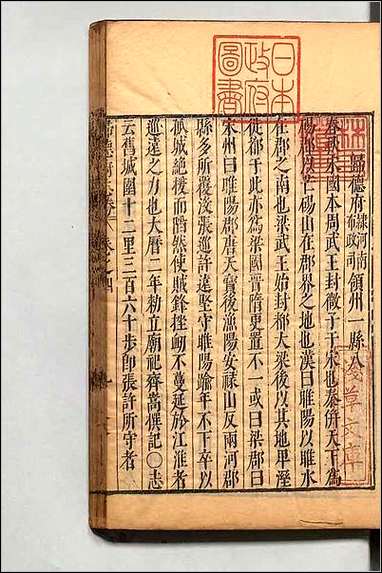 日本
政府
圖書
歸德府隷河南布政司領州一縣八
春秋宋國本周武王封微子于宋也秦併天下為
碭郡以芒碭山在郡界之地也漢曰睢陽以睢水
在郡之南也梁武王始封都大梁後以其地卑溼
徙都于此亦為梁國晉隋更置不一或曰梁郡曰
宋州曰睢陽郡唐天寶後漁陽安祿山反兩河郡
縣多所覆沒張巡許遠堅守睢陽踰年不下卒以
孤城絶援而陷然使賊鋒挫衂不蔓延於江淮者
巡遠之力也大曆二年勅立廟祀齊嵩撰記〇志
云舊城圍十二里三百六十步即張許所守者
淺草文庫
歸德府
卷之四